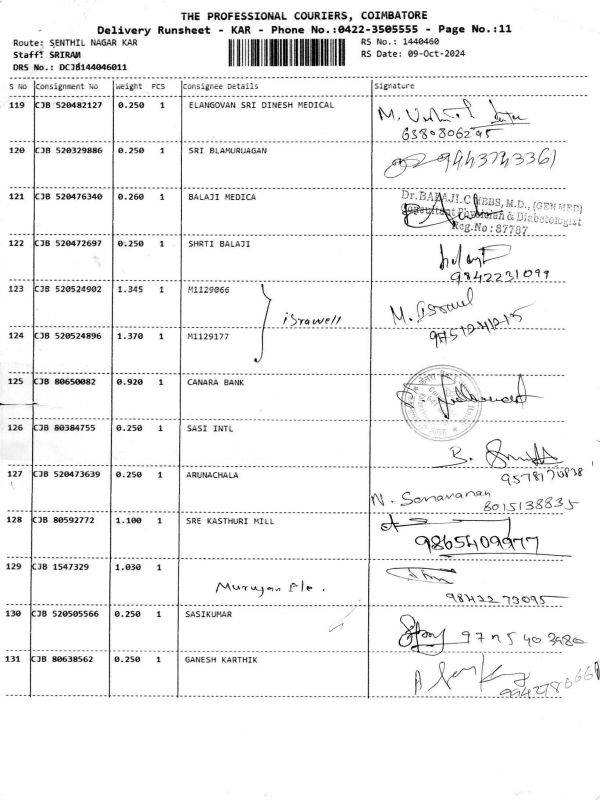 THE PROFESSIONAL COURIERS, COIMBATORE
Delivery Runsheet - KAR - Phone No.:0422-3505555 - Page No.:11
Route: SENTHIL NAGAR KAR
RS No.: 1440460
Staff: SRIRAM
RS Date: 09-Oct-2024
DRS No.: DCJB144046011
S No Consignment No Weight PCS Consignee Details Signature
119 CJB 520482127 0.250 1 ELANGOVAN SRI DINESH MEDICAL
6380806295
120 CJB 520329886 0.250 1 SRI BLAMURUAGAN
9443743361
121 CJB 520476340 0.260 1 BALAJI MEDICA
Dr.BALAJI.C MBBS, M.D., (GEN MED)
Consultant Physician & Diabetologist
Reg.No: 87787
122 CJB 520472697 0.250 1 SHRTI BALAJI
9842231099
123 CJB 520524902 1.345 1 M1129066
israwell
M. Israwel
124 CJB 520524896 1.370 1 M1129177
125 CJB 80650082 0.920 1 CANARA BANK
126 CJB 80384755 0.250 1 SASI INTL
B.
127 CJB 520473639 0.250 1 ARUNACHALA
N. Saravanan
8015138835
128 CJB 80592772 1.100 1 SRE KASTHURI MILL
9865409977
129 CJB 1547329 1.030 1
Murugan Ele.
98422 73095
130 CJB 520505566 0.250 1 SASIKUMAR
131 CJB 80638562 0.250 1 GANESH KARTHIK